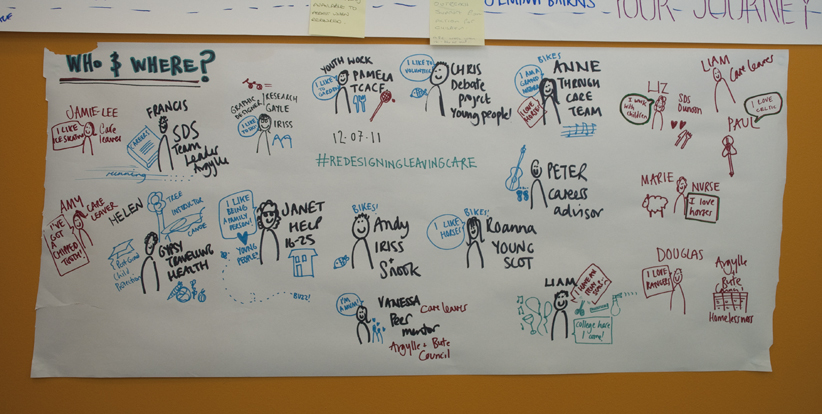 YOUR JOURNEY
WHO & WHERE?
JAMIE-LEE
I LIKE
ICE SKATING
Care
leaver
FRANCIS
SDS
Team
Leader
Argylle
CAREERS
running
GRAPHIC
DESIGNER
RESEARCH
GAYLE
IRISS
YOUTH WORK
I LIKE
TO
GARDEN
PAMELA
TCACF
12.07.11
#REDESIGNINGLEAVINGCARE
I LIKE TO
VOLUNTEER
CHRIS
Debate
Project
Young people!
BIKES!
I AM A
GRAND
I LOVE
HORSES!
ANNE
THROUGH
CARE
TEAM
LIZ
I work
with
children
SDS
Dunoon
LIAM
Care leaver
PAUL
I LOVE
PETER
careers
advisor
MARIE
NURSE
I love
horses
AMY
CARE
LEAVER
I'VE
GOT
A
CHIPPED
TOOTH!
HELEN
TREE
INSTRUCTOR
CANOE
Post Grad
Child
GYPSY
TRAVELLING
HEALTH
I LIKE
BEING
A FAMILY
PERSON!
YOUNG
PEOPLE!
JANET
HELP
16-25
BUZZ!
BIKES!
Andy
IRISS
+
Snook
BIKES!
I LIKE
HORSES!
Roanna
YOUNG
SCOT
I'M
A MUM!
VANESSA
Care leavers
Peer
mentor
Argylle + Bute
Council
LIAM
I HAVE ME
OWN
college here
I come!
DOUGLAS
I LOVE
RANGERS
Argylle
+
Bute
Homelessness